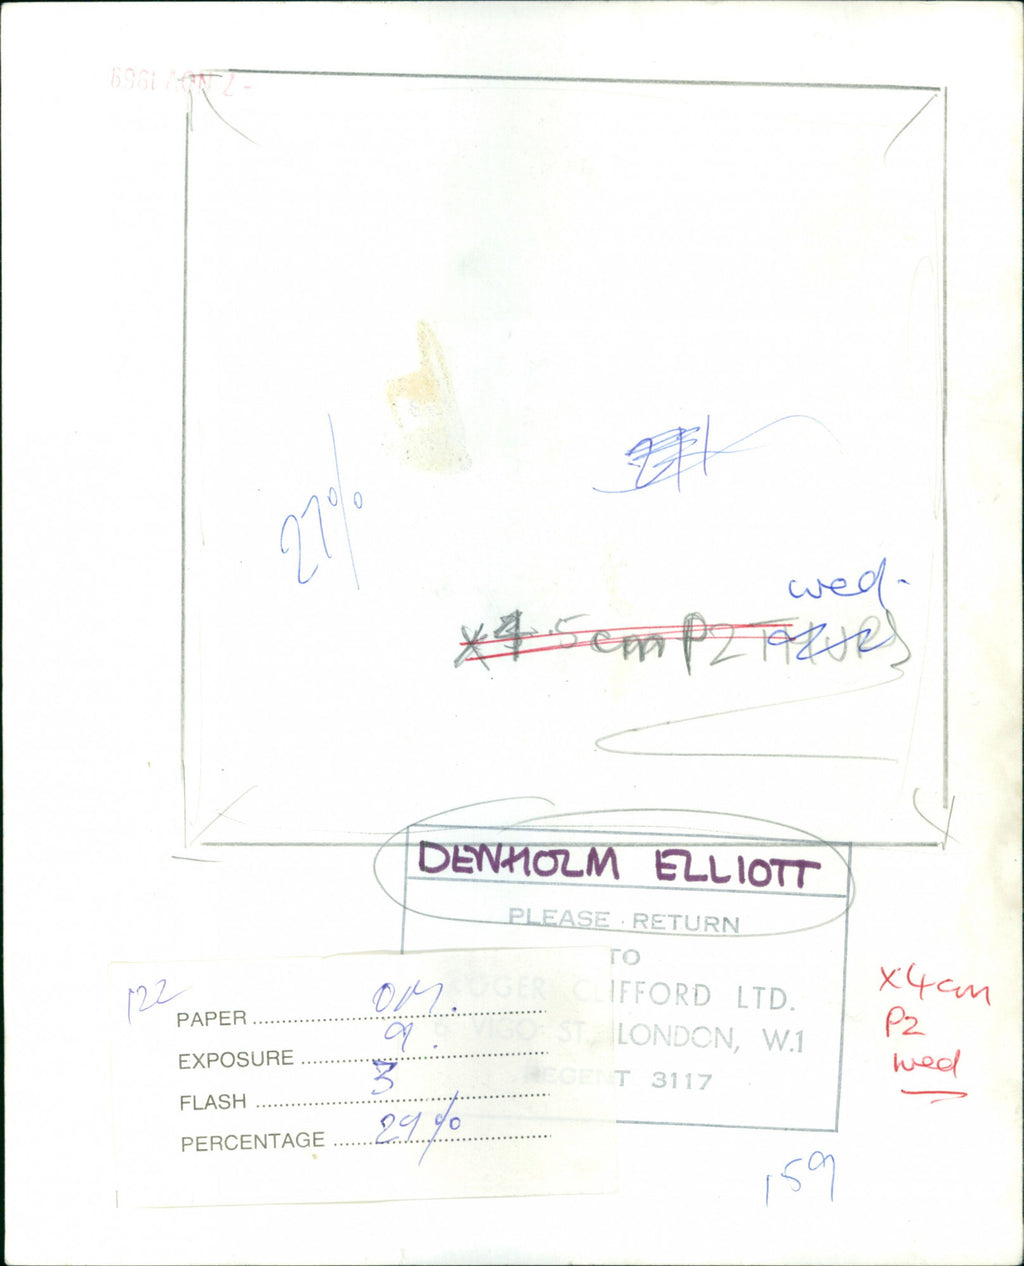 - 7 NOV 1969
27%
wed.
x4.5cm P2 THUR
DENHOLM ELLIOTT
PLEASE RETURN
TO
ROGER CLIFFORD LTD.
6 VIGO ST, LONDON, W.1
REGENT 3117
x4cm
P2
wed
122
PAPER OM.
EXPOSURE 9.
FLASH 3
PERCENTAGE 29%
159